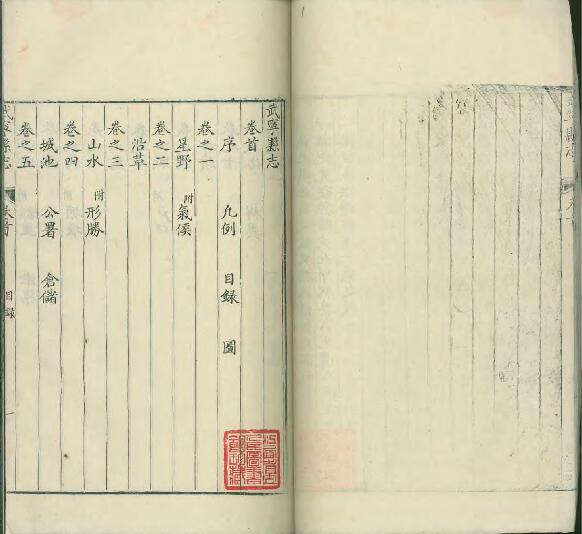 武寧縣志
卷首
序 凡例 目錄 圖
卷之一
星野 附氣候
卷之二
沿革
卷之三
山水 附形勝
卷之四
城池 公署 倉儲
卷之五
武寧縣志 卷首 目錄